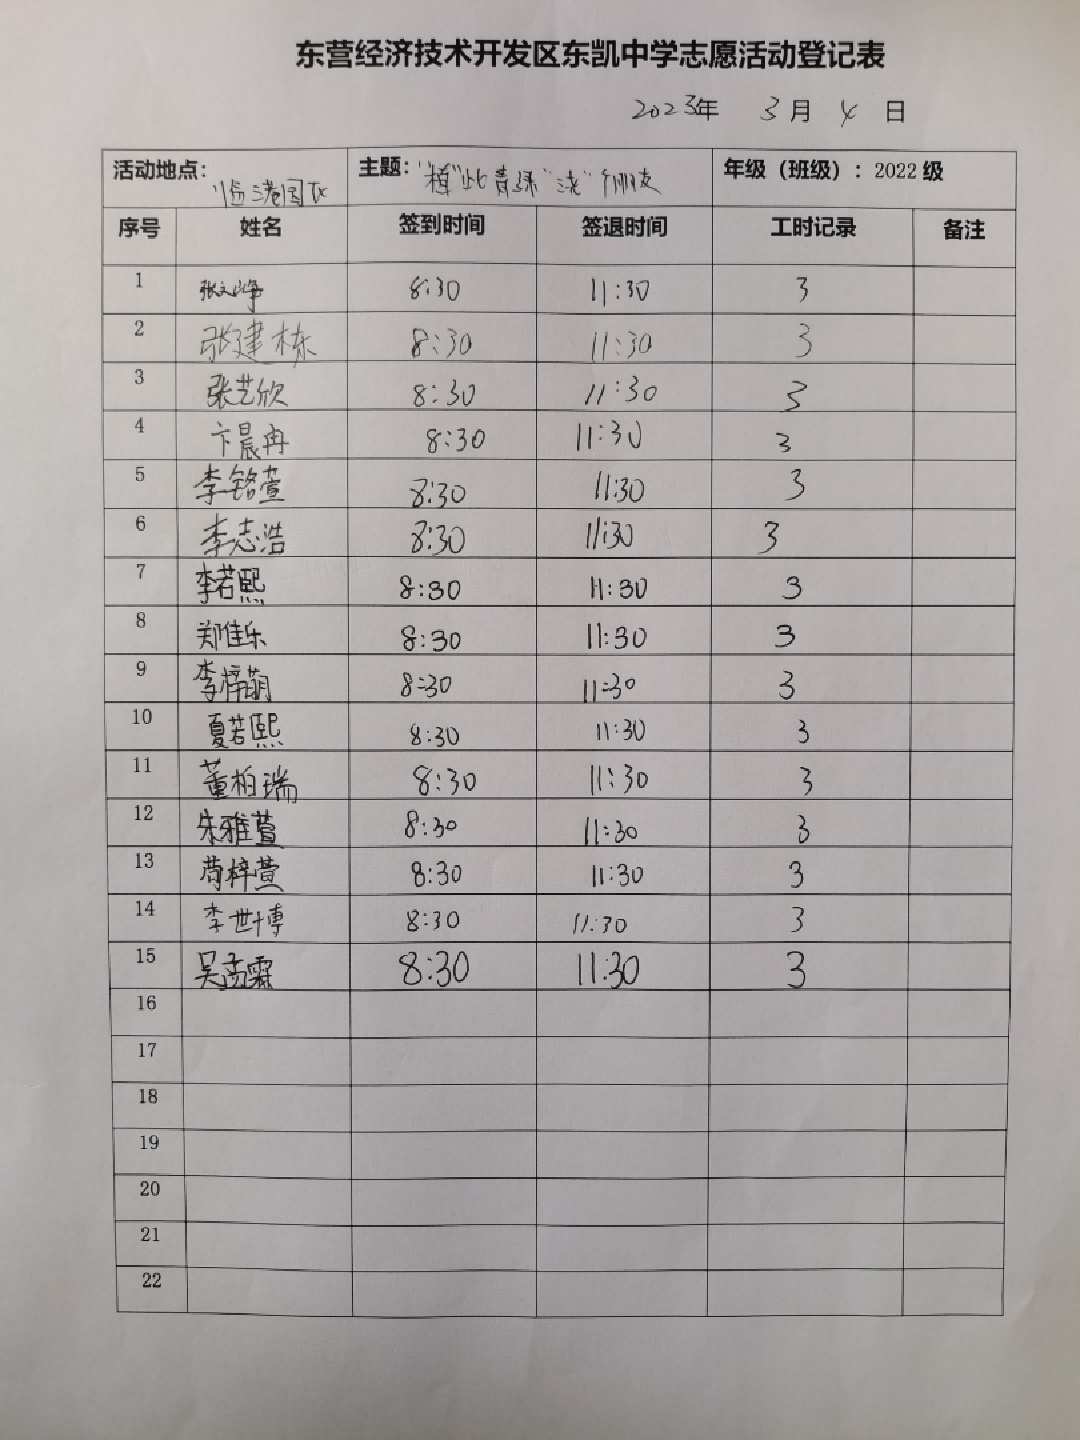 东营经济技术开发区东凯中学志愿活动登记表
2023年 3月 4 日
活动地点：临港园区 主题："植"此青绿 "浇" 年级（班级）：2022级
序号 姓名 签到时间 签退时间 工时记录 备注
1 张文峥 8:30 11:30 3
2 张建栋 8:30 11:30 3
3 张艺欣 8:30 11:30 3
4 卞晨冉 8:30 11:30 3
5 李铭萱 8:30 11:30 3
6 李志浩 8:30 11:30 3
7 李若熙 8:30 11:30 3
8 郑佳乐 8:30 11:30 3
9 李梓萌 8:30 11:30 3
10 夏若熙 8:30 11:30 3
11 董柏瑞 8:30 11:30 3
12 朱雅萱 8:30 11:30 3
13 苟梓萱 8:30 11:30 3
14 李世博 8:30 11:30 3
15 吴孟霖 8:30 11:30 3
16
17
18
19
20
21
22